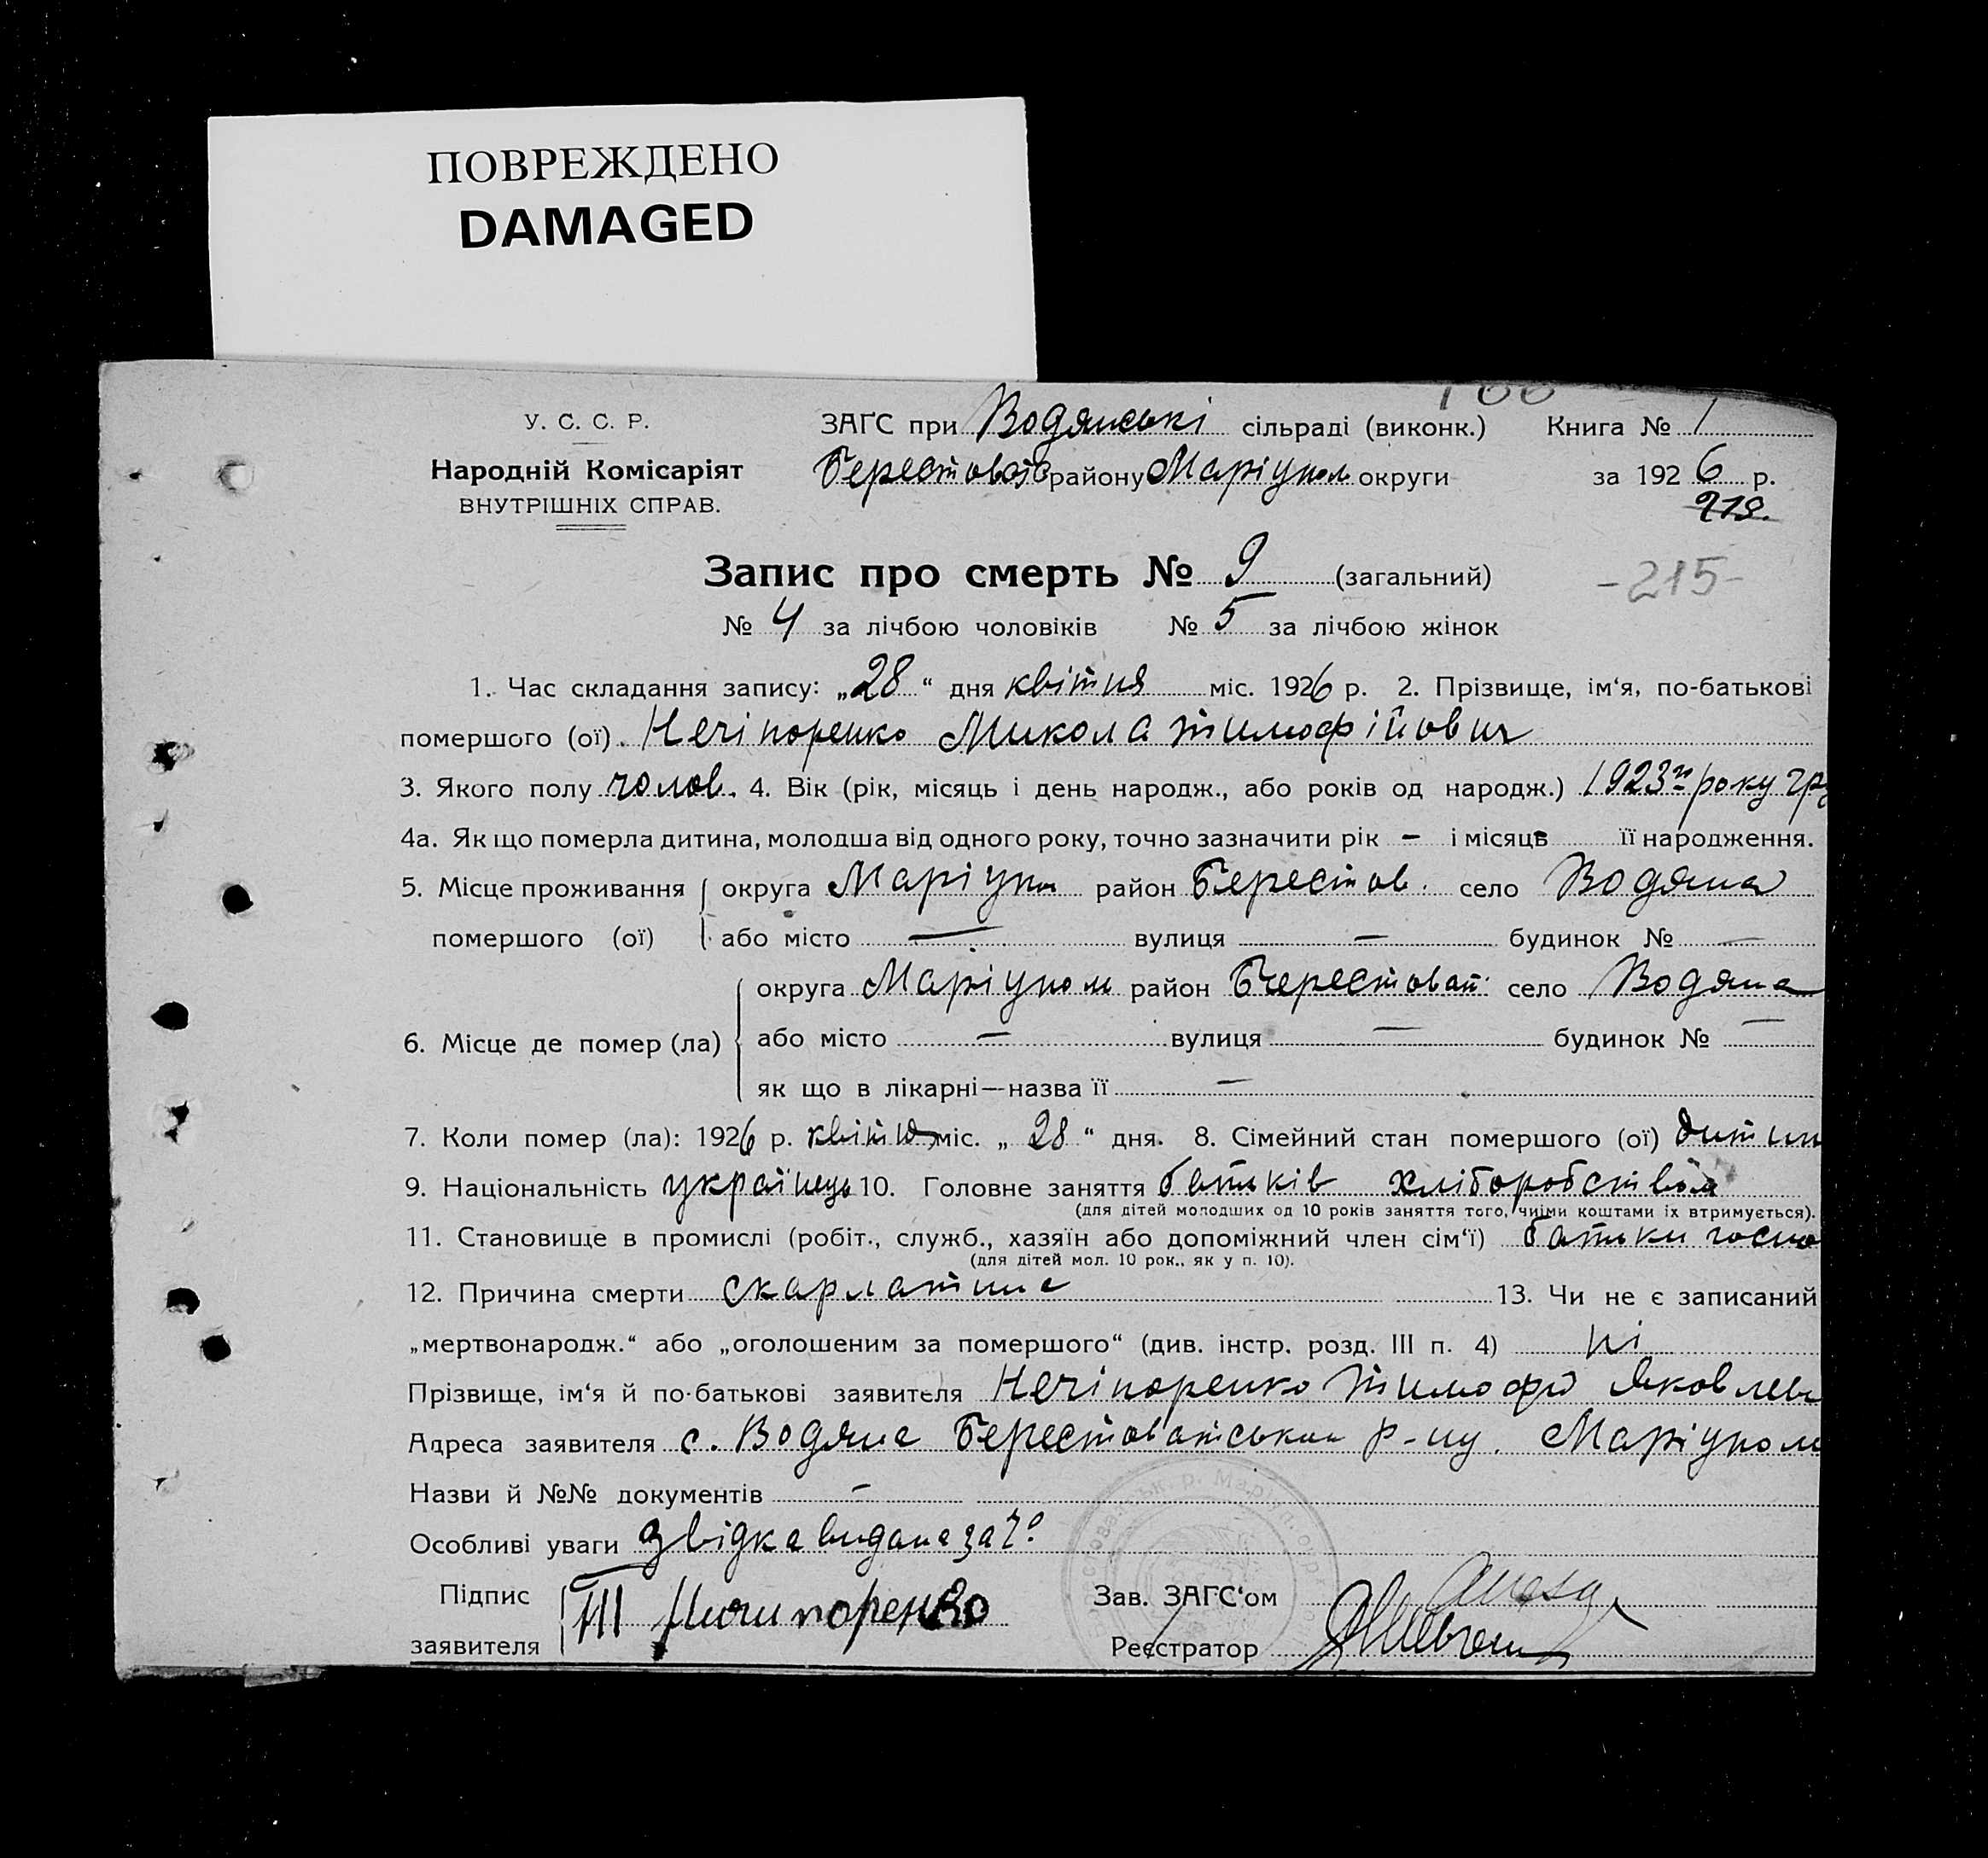 ПОВРЕЖДЕНО
DAMAGED
У. С. С. Р.
Народній Комісаріят
ВНУТРІШНІХ СПРАВ.
ЗАҐС при Водянські сільраді (виконк.) Книга № 1
району Маріупол округи за 1926 р.
219.
Запис про смерть № 9 (загальний)
-215-
№ 4 за лічбою чоловіків № 5 за лічбою жінок
1. Час складання запису: „28“ дня квітня міс. 1926 р. 2. Прізвище, ім‘я, по-батькові
помершого (ої) Нечіпоренко Микола Тимофійович
3. Якого полу чолов. 4. Вік (рік, місяць і день народж., або років од народж.) 1923го року гру
4а. Як що померла дитина, молодша від одного року, точно зазначити рік — і місяць її народження.
5. Місце проживання округа Маріуп район Берестов. село Водяна
помершого (ої) або місто — вулиця — будинок № —
округа Маріупол район Берестоват. село Водяна
6. Місце де помер (ла) або місто — вулиця — будинок № —
як що в лікарні—назва її —
7. Коли помер (ла): 1926 р. квітня міс. „28“ дня. 8. Сімейний стан помершого (ої) дитин
9. Національність українець 10. Головне заняття батьків хліборобство
(для дітей молодших од 10 років заняття того, чиїми коштами їх втримується).
11. Становище в промислі (робіт., служб., хазяїн або допоміжний член сім‘ї) батьки госпо
(для дітей мол. 10 рок., як у п. 10).
12. Причина смерти скарлатина 13. Чи не є записаний
„мертвонародж.“ або „оголошеним за помершого“ (див. інстр. розд. III п. 4) ні
Прізвище, ім‘я й по-батькові заявителя Нечіпоренко Тимофій Яковлев
Адреса заявителя с. Водяна Берестоватського р-ну. Маріупол
Назви й №№ документів —
Особливі уваги Звідка видана за
Підпис Зав. ЗАҐС‘ом
заявителя Ничипоренко Реєстратор